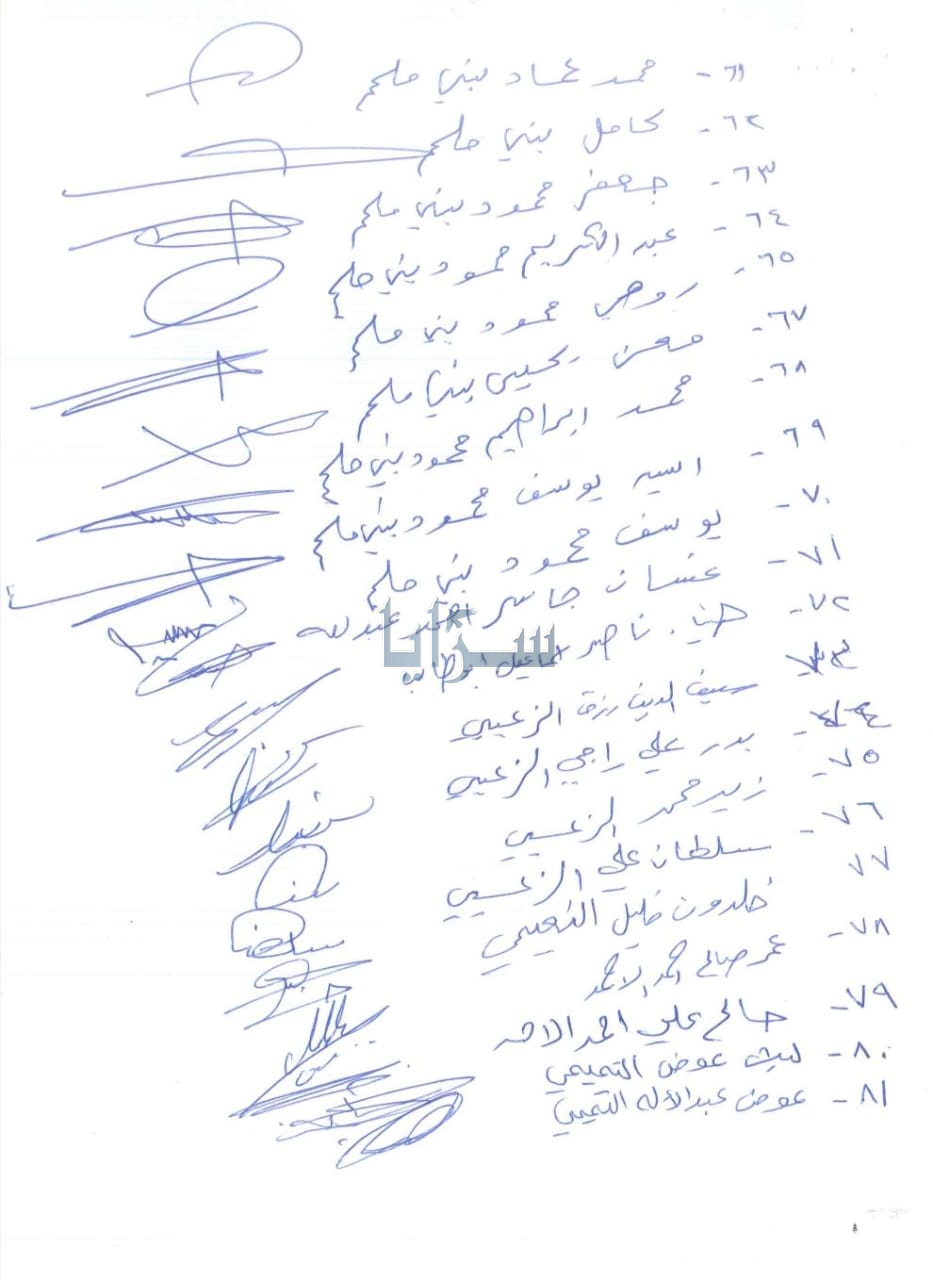 ٦١- محمد عماد بني ملحم
٦٢- كامل بني ملحم
٦٣- جعفر محمود بني ملحم
٦٤- عبد الكريم محمود بني ملحم
٦٥- روحي محمود بني ملحم
٦٧- معن يحيى بني ملحم
٦٨- محمد ابراهيم محمود بني ملحم
٦٩- اسيد يوسف محمود بني ملحم
٧٠- يوسف محمود بني ملحم
٧١- غسان جاسر احمد عبدلله
٧٢- ناصر اسماعيل ابو طالب
٧٣- سيف الدين رزق الزعبي
٧٤- بدر علي راجي الزعبي
٧٥- زيد محمد الزعبي
٧٦- سلطان علي الزعبي
٧٧ خلدون خليل النعيمي
٧٨- عمر صالح احمد الاحمد
٧٩- صالح علي احمد الاحمد
٨٠- ليث عوض التميمي
٨١- عوض عبدالاله التميمي
سرايا